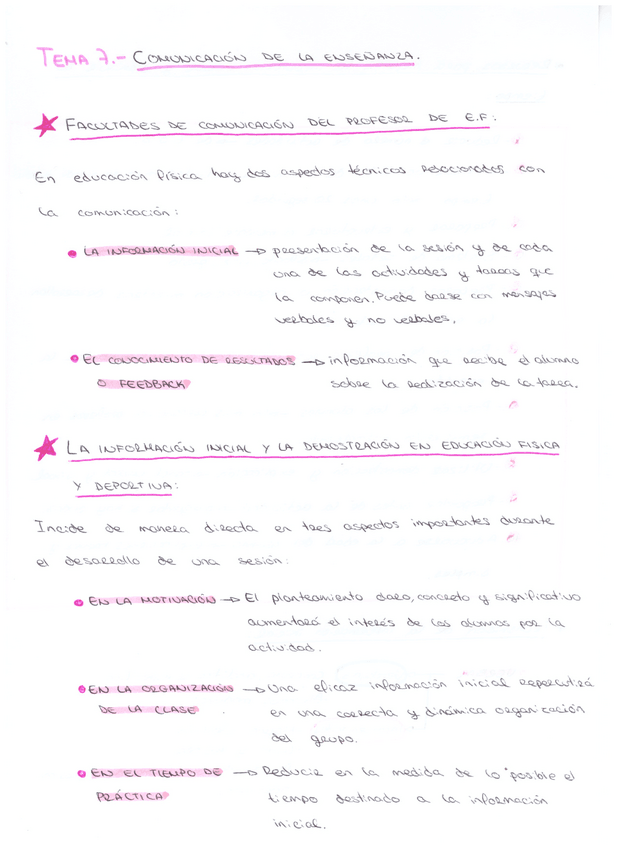 TEMA 7.- COMUNICACIÓN DE LA ENSEÑANZA.
★ FACULTADES DE COMUNICACIÓN DEL PROFESOR DE E.F:
En educación física hay dos aspectos técnicos relacionados con
la comunicación:
• LA INFORMACIÓN INICIAL → presentación de la sesión y de cada
una de las actividades y tareas que
la componen. Puede darse con mensajes
verbales y no verbales.
• EL CONOCIMIENTO DE RESULTADOS → información que recibe el alumno
O FEEDBACK sobre la realización de la tarea.
★ LA INFORMACIÓN INICIAL Y LA DEMOSTRACIÓN EN EDUCACIÓN FISICA
Y DEPORTIVA:
Incide de manera directa en tres aspectos importantes durante
el desarrollo de una sesión:
• EN LA MOTIVACIÓN → El planteamiento claro, concreto y significativo
aumentará el interés de los alumnos por la
actividad.
• EN LA ORGANIZACIÓN → Una eficaz información inicial repercutirá
DE LA CLASE en una correcta y dinámica organización
del grupo.
• EN EL TIEMPO DE → Reducir en la medida de lo posible el
PRÁCTICA tiempo destinado a la información
inicial.